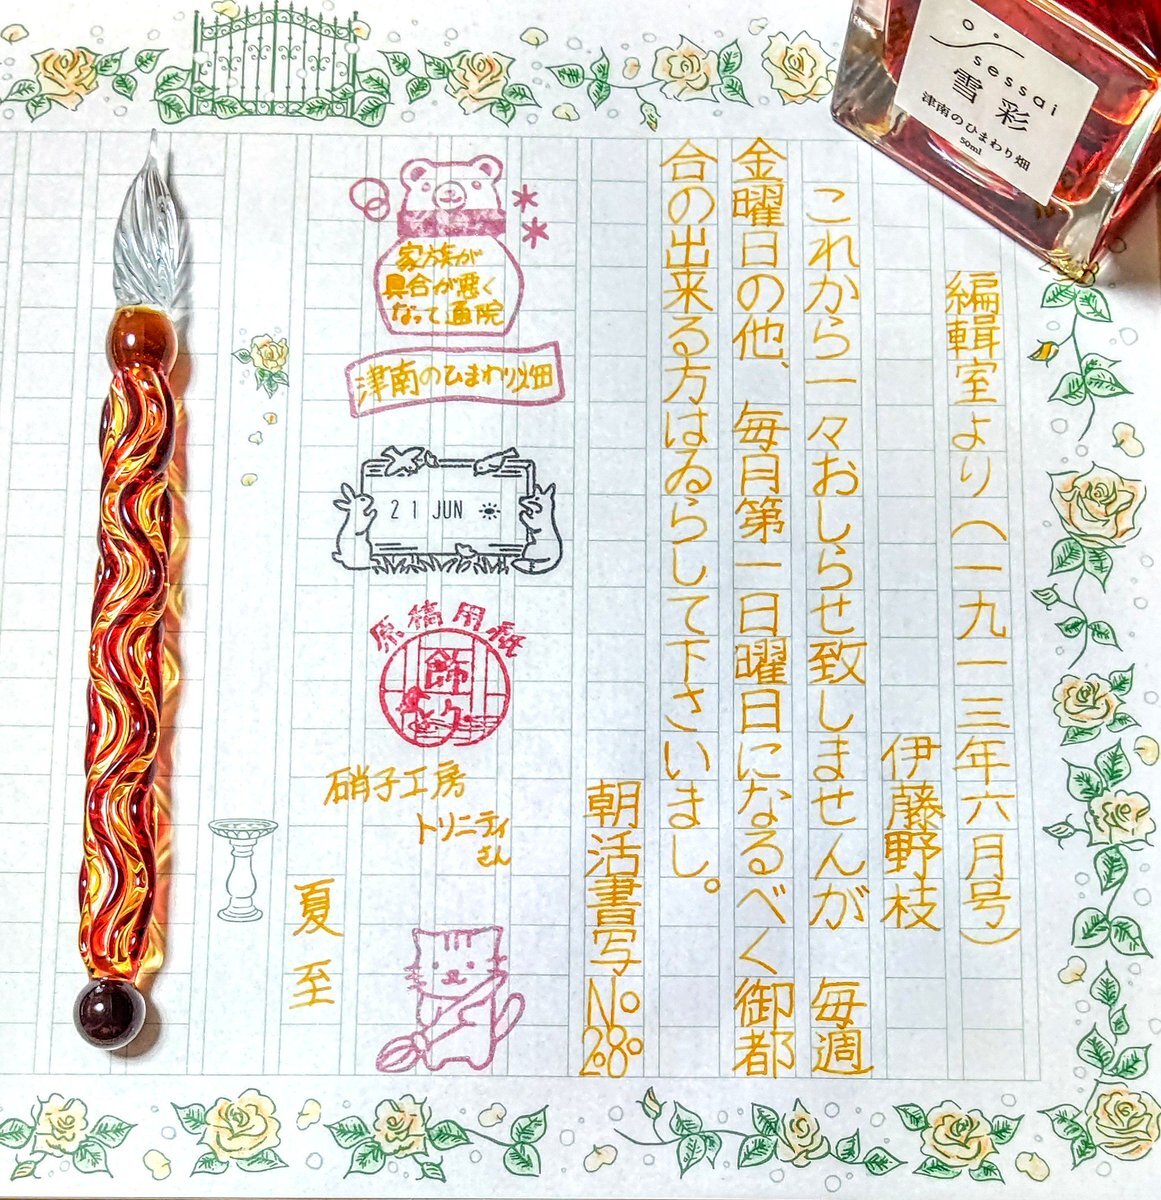 編輯室より(一九一三年六月号)
伊藤野枝
これから一々おしらせ致しませんが 毎週
金曜日の他、毎月第一日曜日になるべく御都
合の出来る方はゐらして下さいまし。
朝活書写 No 280
家族が
具合が悪く
なって通院
津南のひまわり畑
21 JUN
原稿用紙
飾り
硝子工房
トリニティ
さん
夏至
sessai
雪彩
津南のひまわり畑
50ml